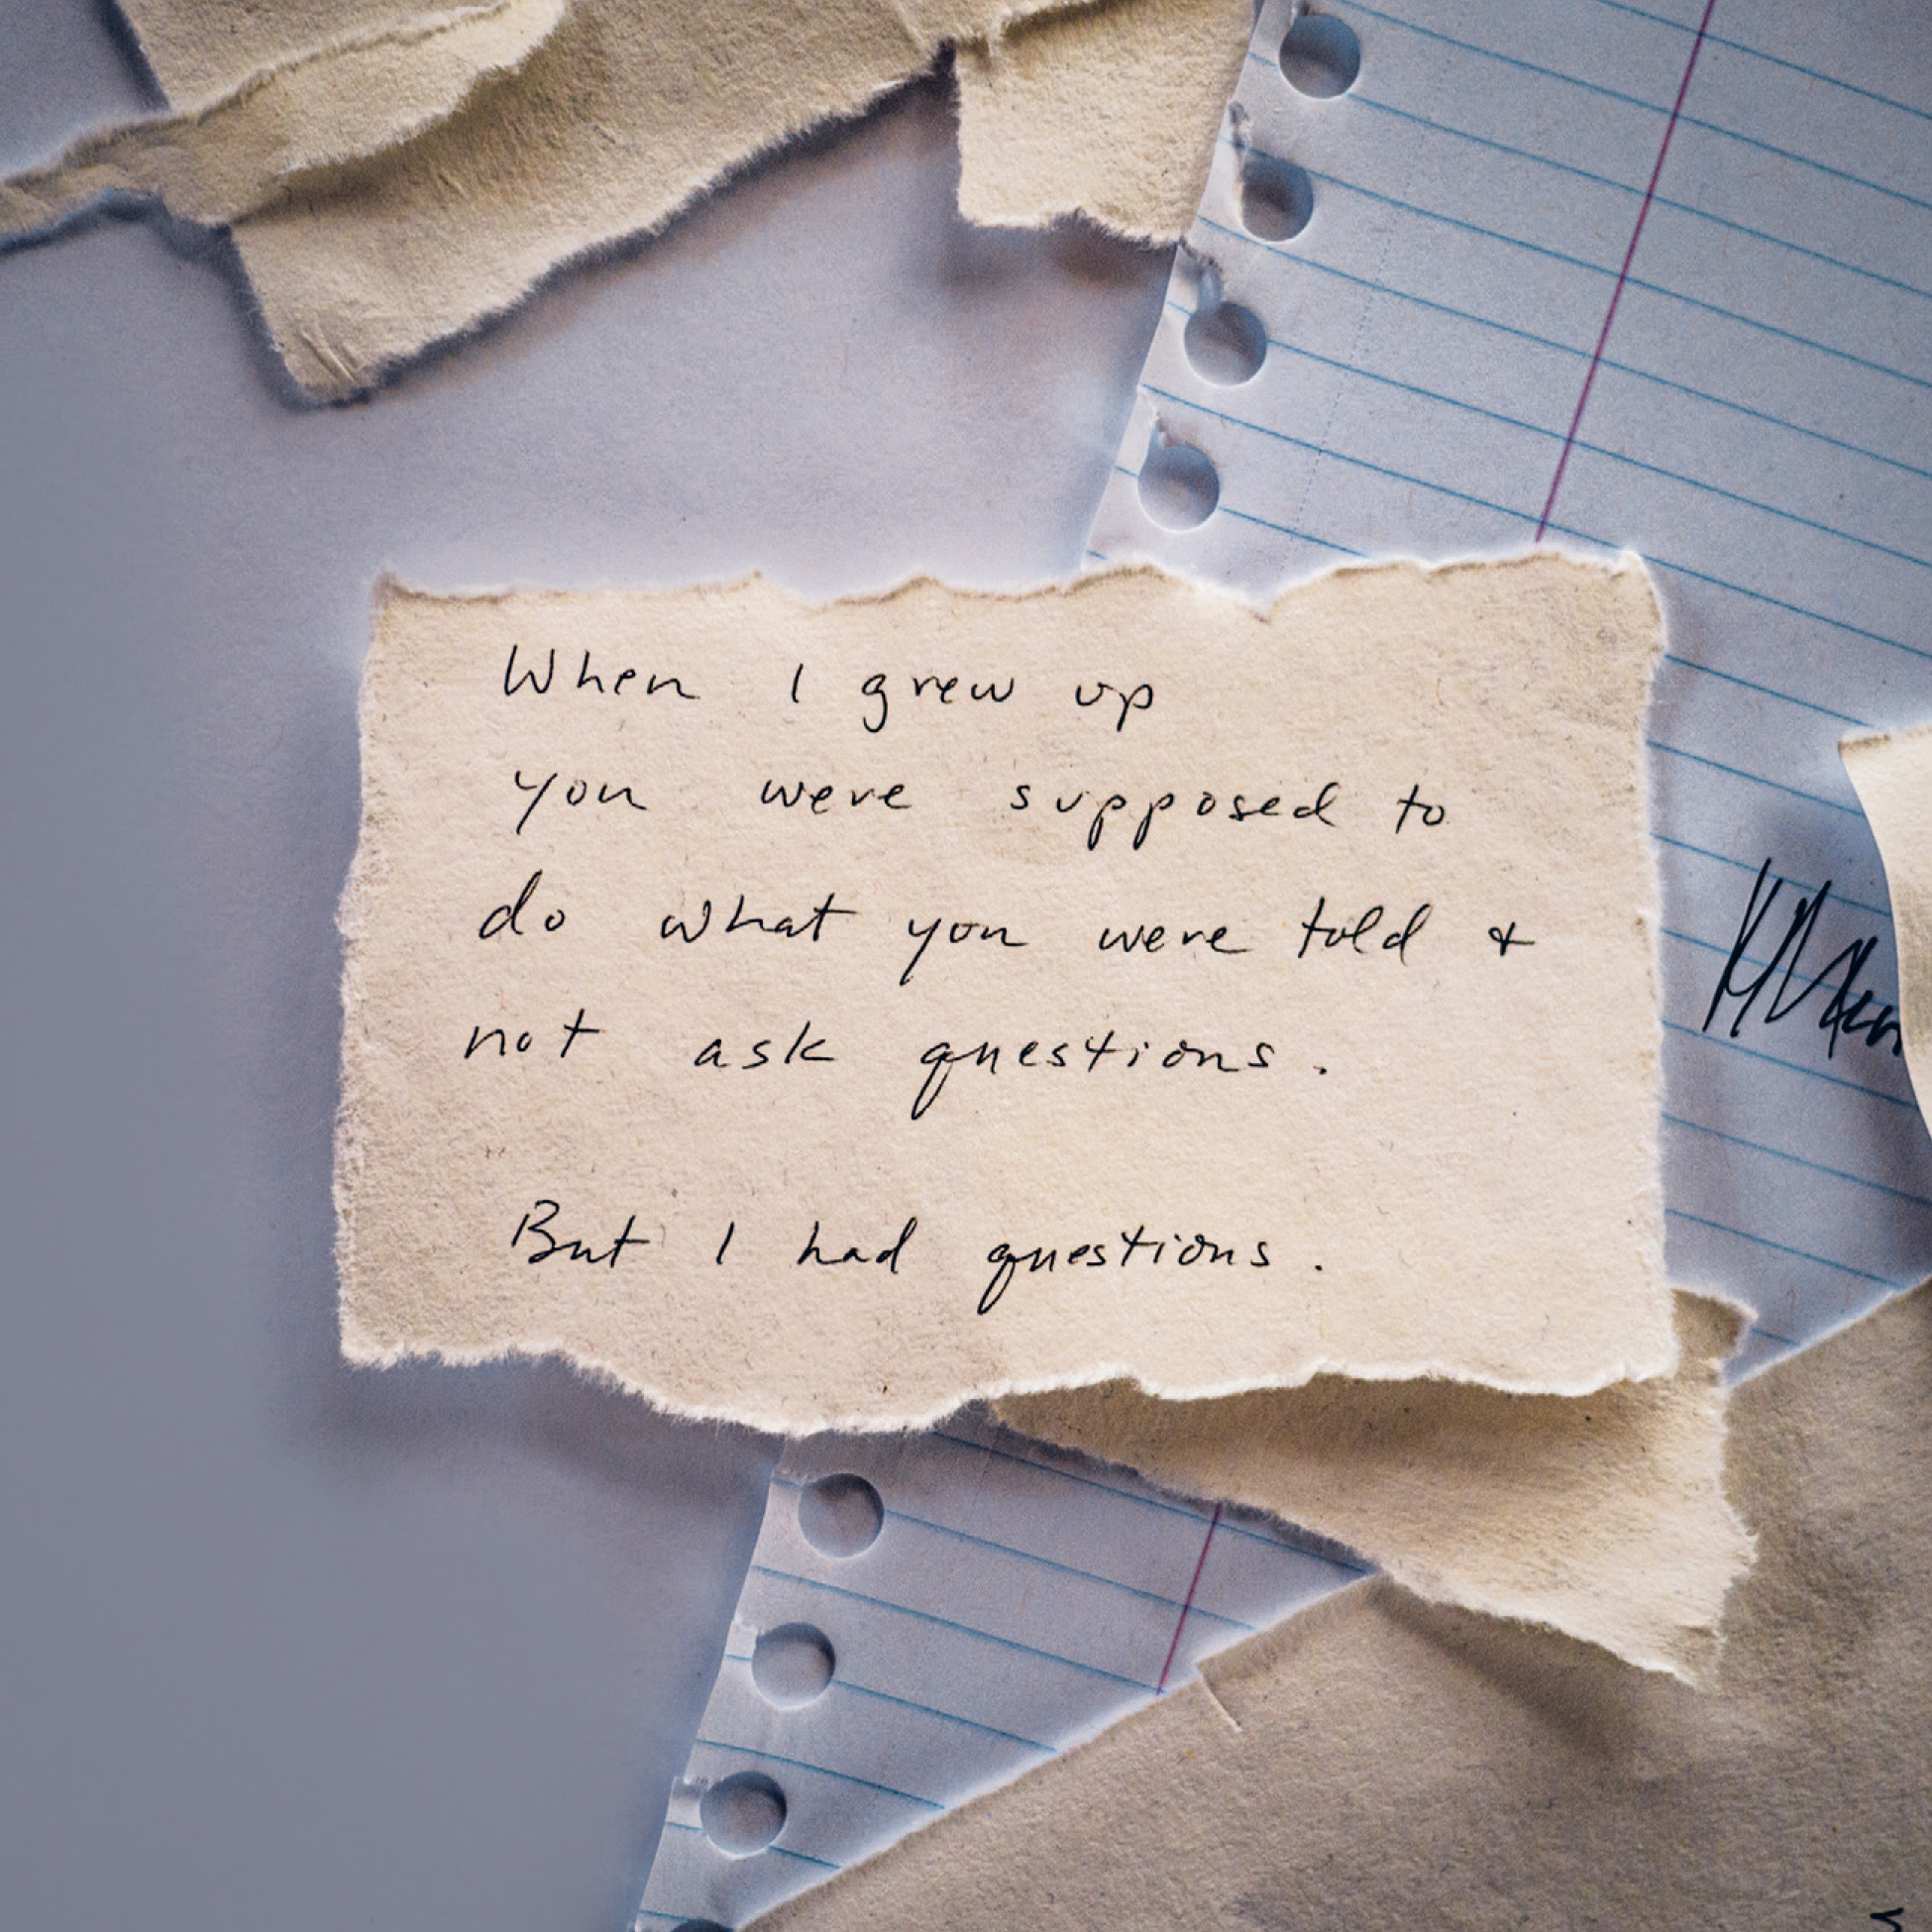 When I grew up
you were supposed to
do what you were told &
not ask questions.
But I had questions.